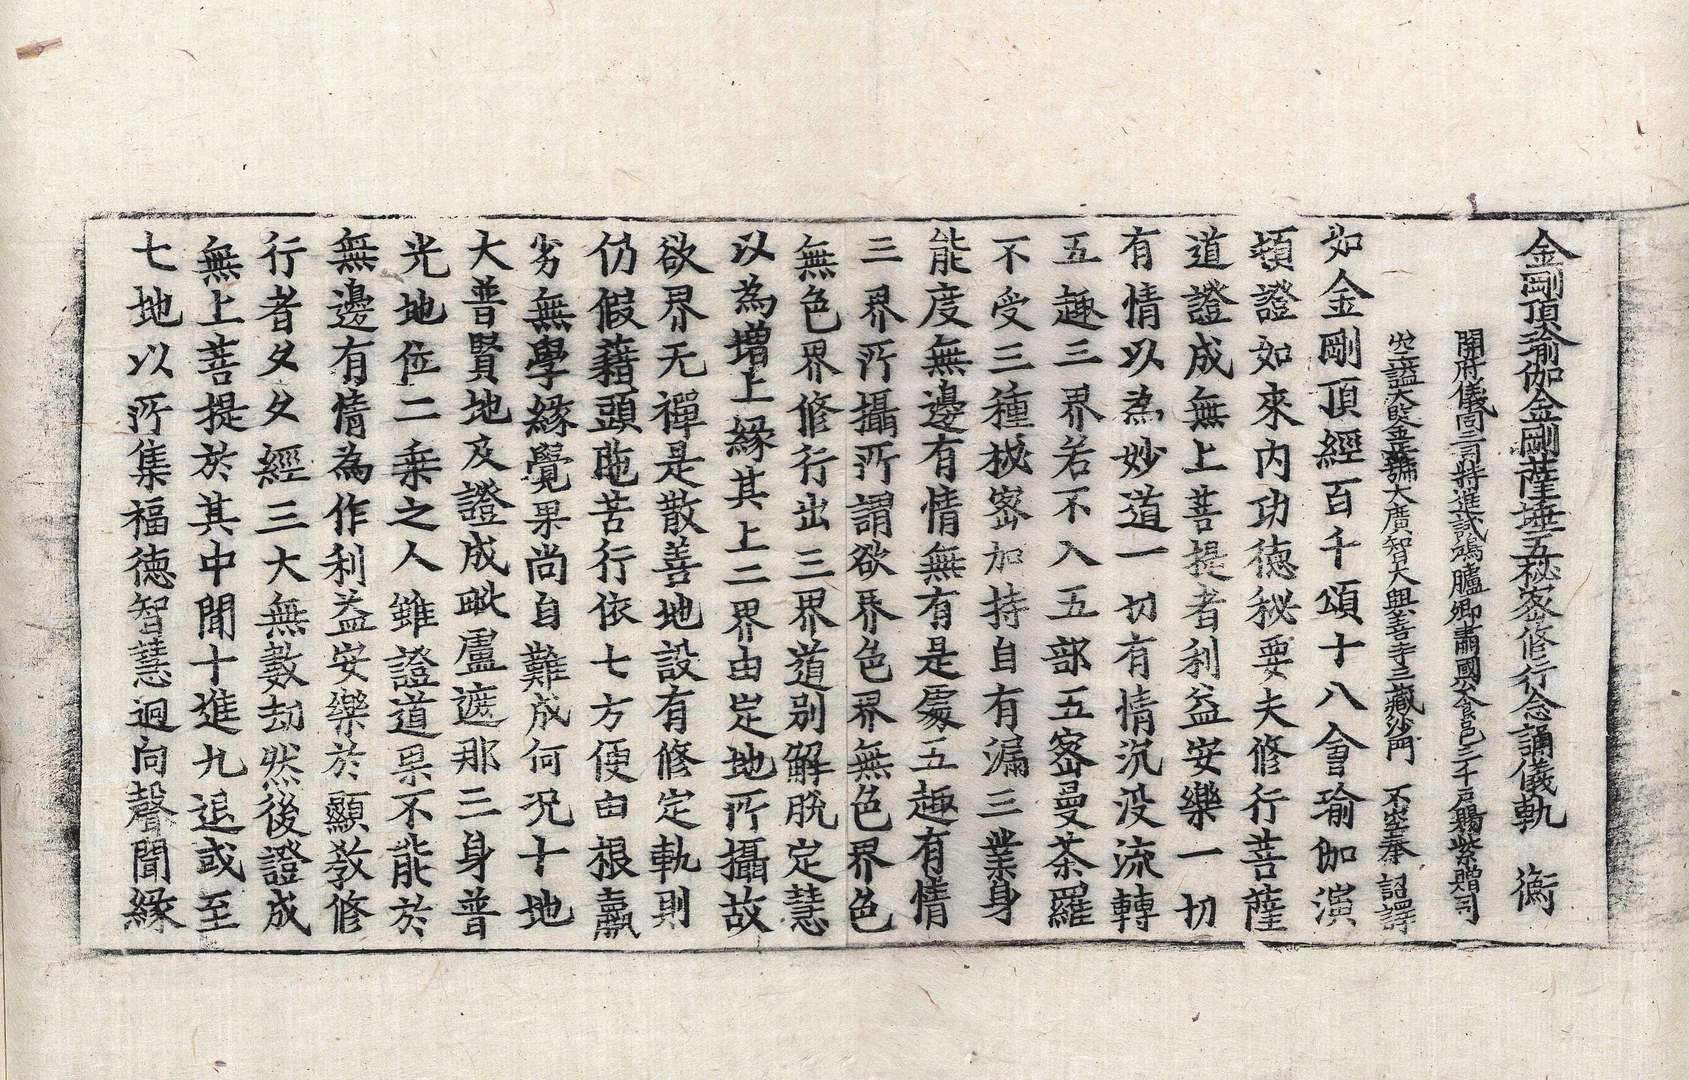 金剛頂瑜伽金剛薩埵五秘密修行念誦儀軌 衡
開府儀同三司特進試鴻臚卿肅國公食邑三千戶賜紫贈司
空謚大鑒正號大廣智大興善寺三藏沙門 不空奉 詔譯
如金剛頂經百千頌十八會瑜伽演
頓證如來内功德秘要夫修行菩薩
道證成無上菩提者利益安樂一切
有情以為妙道一切有情沉没流轉
五趣三界若不入五部五密曼荼羅
不受三種秘密加持自有漏三業身
能度無邊有情無有是處五趣有情
三界所攝所謂欲界色界無色界色
無色界修行出三界道别解脫定慧
以為增上緣其上二界由定地所攝故
欲界无禪是散善地設有修定軌則
仍假藉頭陁苦行依七方便由根羸
劣無學緣覺果尚自難成何况十地
大普賢地及證成毗盧遮那三身普
光地位二乘之人雖證道果不能於
無邊有情為作利益安樂於顯教修
行者久久經三大無數劫然後證成
無上菩提於其中間十進九退或至
七地以所集福德智慧迴向聲聞緣